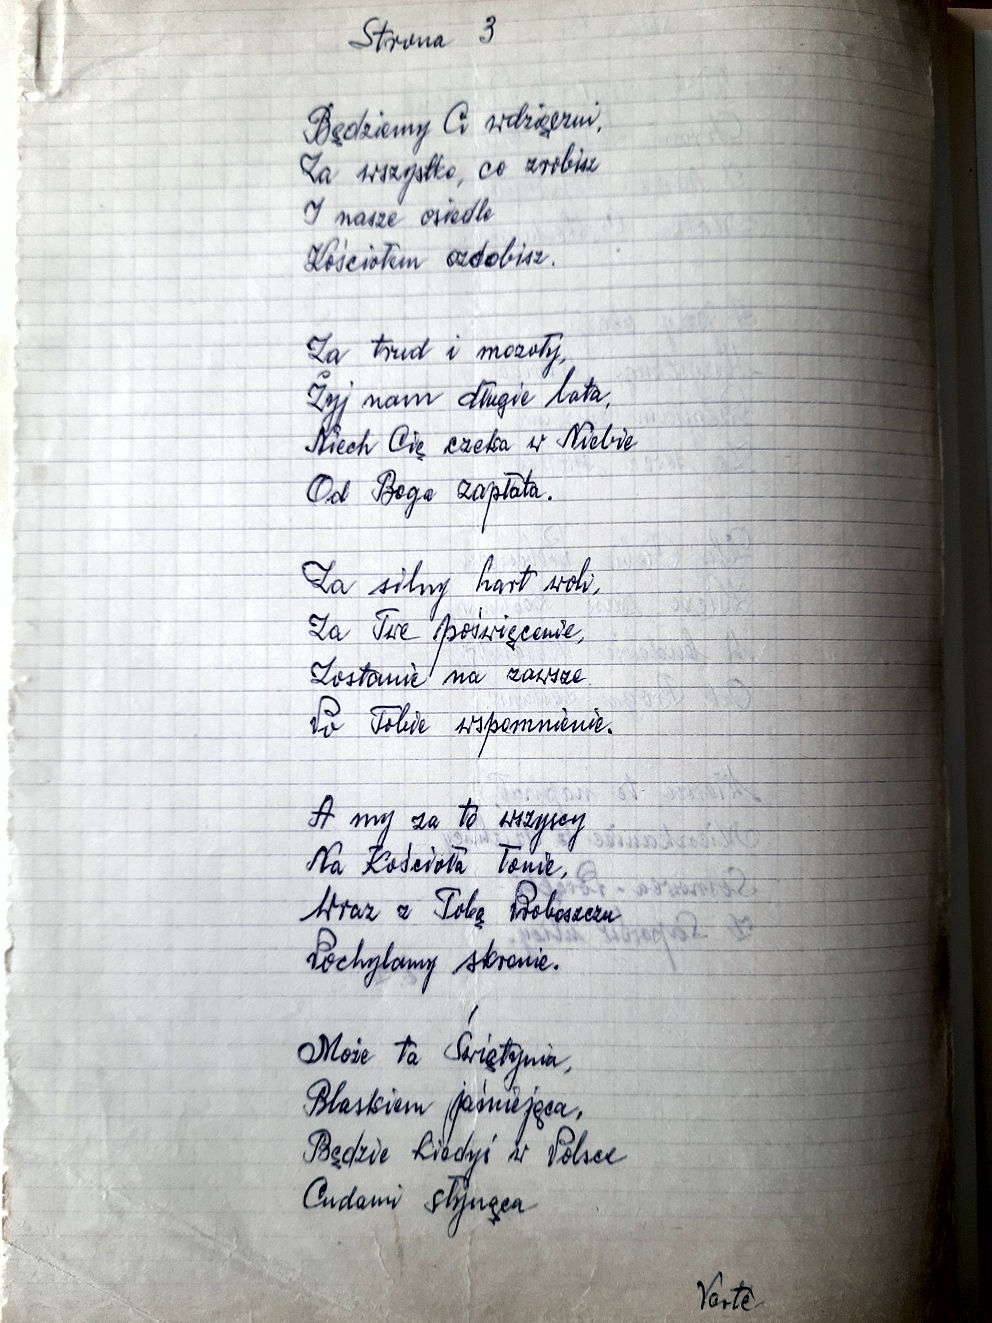 Strona 3
Będziemy Ci wdzięczni,
Za wszystko, co zrobisz
I nasze osiedle
Kościołem ozdobisz.
Za trud i mozoły,
Żyj nam długie lata,
Niech Cię czeka w Niebie
Od Boga zapłata.
Za silny hart woli,
Za Twe poświęcenie,
Zostanie na zawsze
Po Tobie wspomnienie.
A my za to wszyscy
Na Kościoła łonie,
Wraz z Tobą Proboszczu
Pochylamy skronie.
Może ta Świątynia,
Blaskiem jaśniejąca,
Będzie kiedyś w Polsce
Cudami słynąca
Verte